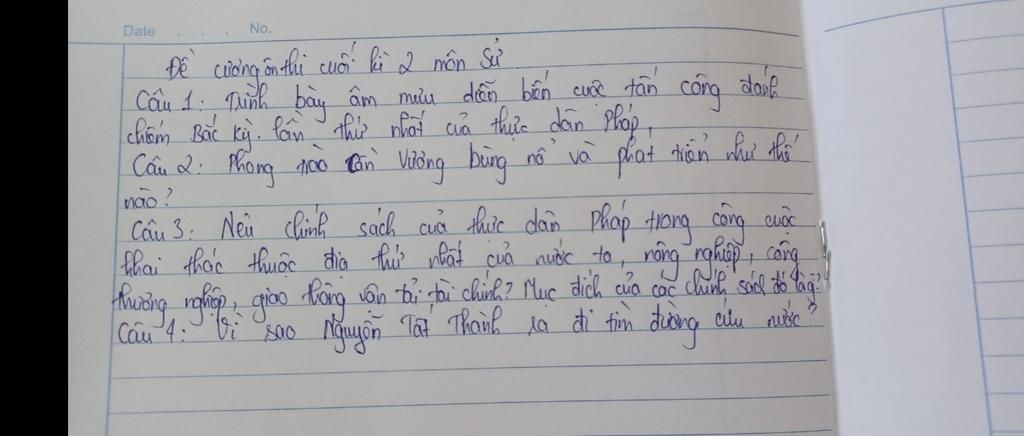 Date . . . No.
Đề cương ôn thi cuối kì 2 môn Sử
Câu 1: Trình bày âm mưu diễn biến cuộc tấn công đánh
chiếm Bắc Kỳ. lần thứ nhất của thực dân Pháp,
Câu 2: Phong trào Cần Vương bùng nổ và phát triển như thế
nào?
Câu 3: Nêu chính sách của thực dân Pháp trong công cuộc
khai thác thuộc địa thứ nhất của nước ta, nông nghiệp, công
thương nghiệp, giao thông vận tải tài chính? Mục đích của các chính sách đó là gì?
Câu 4: Vì sao Nguyễn Tất Thành ra đi tìm đường cứu nước?